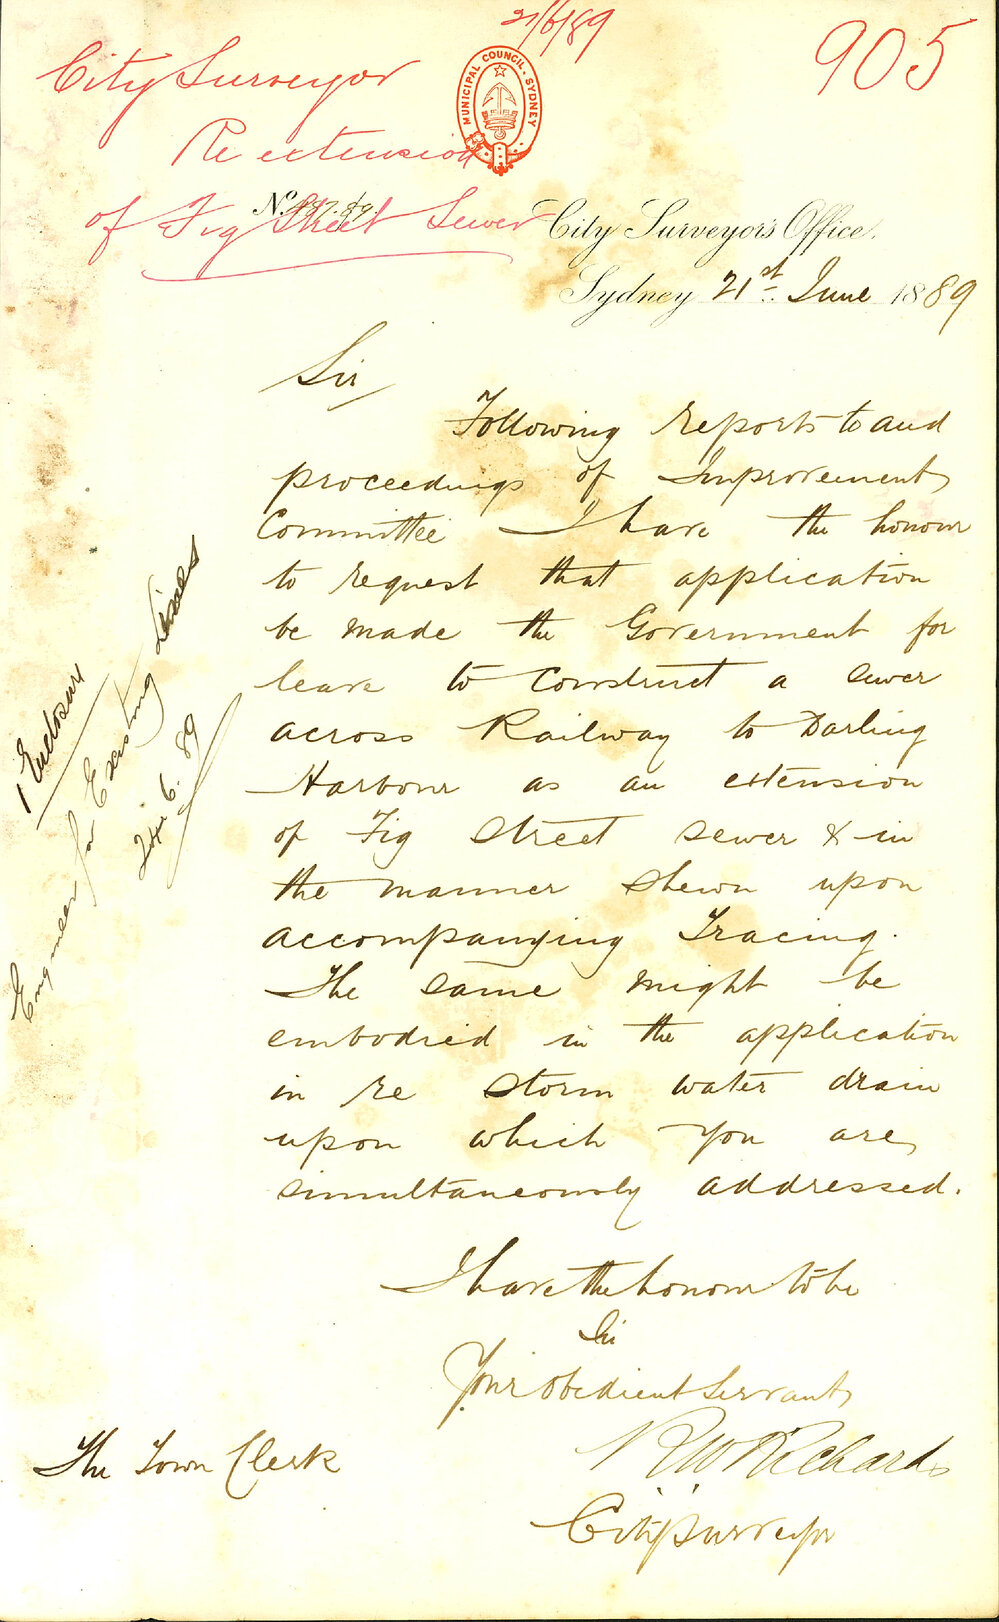 21/6/89
905
City Surveyor
Re extension
of Fig Street Sewer
MUNICIPAL COUNCIL. SYDNEY
No.
City Surveyor's Office.
Sydney 21st June 1889
Sir
Following reports to and
proceedings of Improvement
Committee I have the honour
to request that application
be made the Government for
leave to construct a sewer
across Railway to Darling
Harbour as an extension
of Fig Street sewer & in
the manner shewn upon
accompanying Tracing.
The same might be
embodied in the application
in re storm water drain
upon which you are
simultaneously addressed.
I have the honour to be
Sir
Your obedient Servant
R W Richards
City Surveyor
The Town Clerk
1 Enclosure
Engineer for Existing Lines
24.6.89